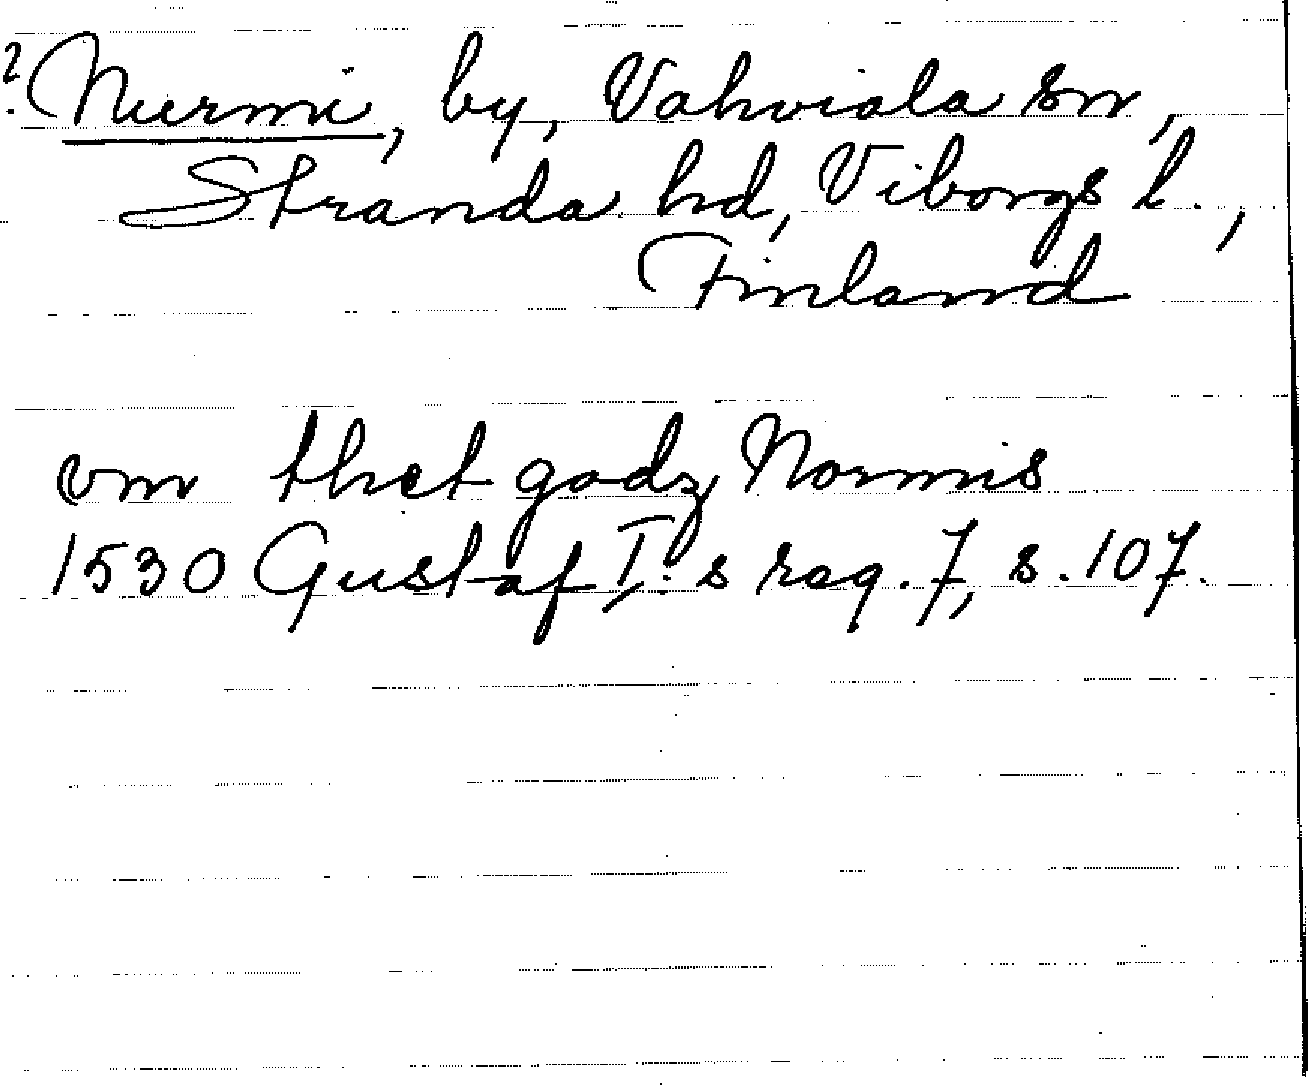 ? Nurmi, by, Vahviala sn,
Stranda hd, Viborgs l.,
Finland
om thet godz Normis
1530 Gustaf I:s reg. 7, s. 107.